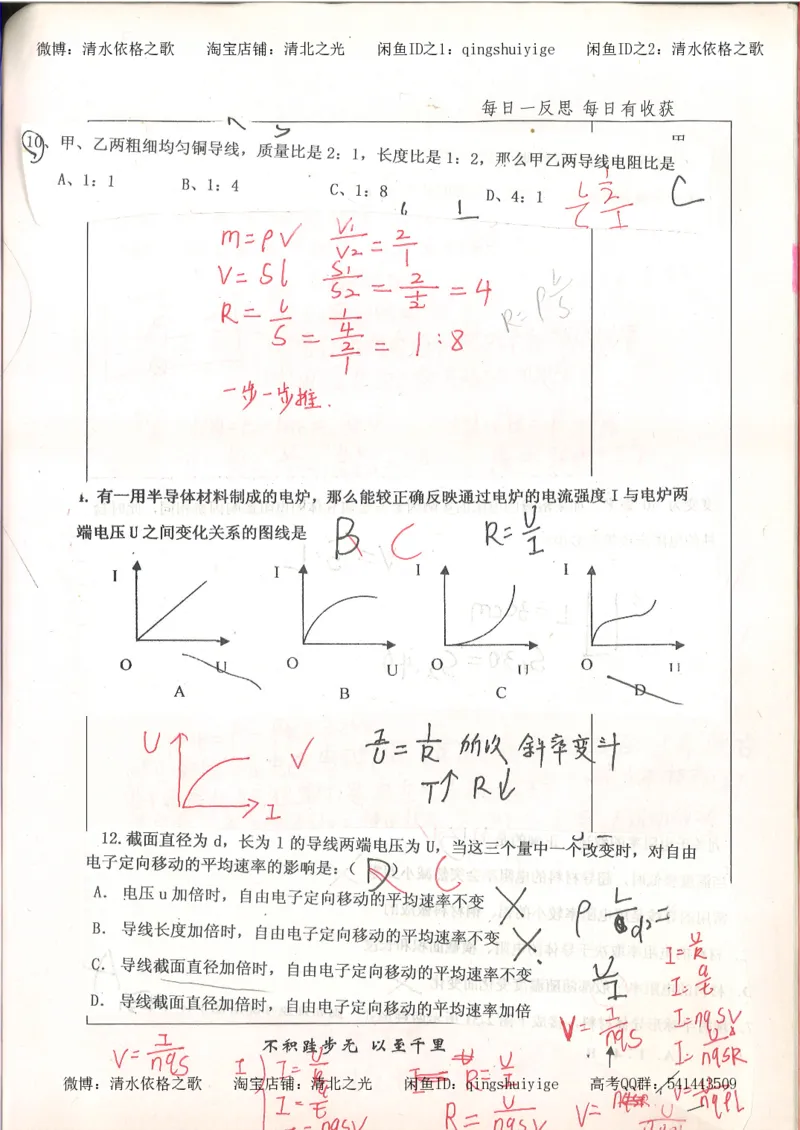 微博：清水依格之歌 淘宝店铺：清北之光 闲鱼ID之1：qingshuiyige 闲鱼ID之2：清水依格之歌
每日一反思 每日有收获
10、甲、乙两粗细均匀铜导线，质量比是2：1，长度比是1：2，那么甲乙两导线电阻比是
A、1：1 B、1：4 C、1：8 D、4：1
C
m=ρV V1/V2=2/1
V=Sl S1/S2=2/(1/2)=4
R=L/S=(1/4)/(2/1)=1:8
R=ρL/S
一步一步推.
有一用半导体材料制成的电炉，那么能较正确反映通过电炉的电流强度I与电炉两
端电压U之间变化关系的图线是
B C R=U/I
I I I I
O U O U O U O U
A B C D
U I
I/U=1/R 所以 斜率变斗
T↑ R↓
12.截面直径为d，长为l的导线两端电压为U，当这三个量中一个改变时，对自由
电子定向移动的平均速率的影响是：( )
D C
A. 电压u加倍时，自由电子定向移动的平均速率不变
B. 导线长度加倍时，自由电子定向移动的平均速率不变
C. 导线截面直径加倍时，自由电子定向移动的平均速率不变
D. 导线截面直径加倍时，自由电子定向移动的平均速率加倍
U/I
I=U/R
I=q/t
I=nqSV
V=I/nqS
不积跬步无 以至千里
V=I/nqS
R=U/I
微博：清水依格之歌 淘宝店铺：清北之光 闲鱼ID：qingshuiyige 高考QQ群：541443509
R=U/nqSV